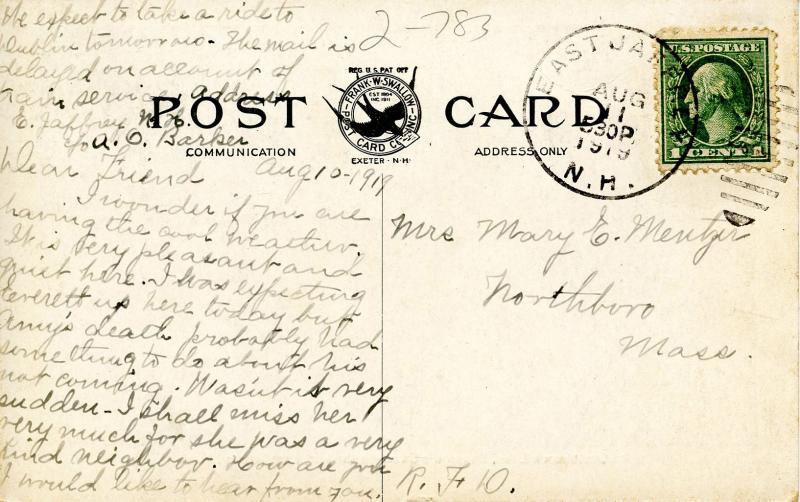 We expect to take a ride to
Dublin tomorrow - The mail is
delayed on account of
train service. Address
E. Jaffrey N.H.
c/o A. O. Barker
2-783
POST CARD
COMMUNICATION
ADDRESS ONLY
REG. U.S. PAT. OFF.
FRANK·W·SWALLOW
EST 1904
INC. 1911
POST CARD CO. INC.
EXETER·N·H·
EAST JAFFREY
AUG
11
530P
1919
N.H.
U.S. POSTAGE
1 CENT 1
Dear Friend Aug 10-1919
I wonder if you are
having the cool weather.
It is very pleasant and
quiet here. I was expecting
Everett up here today but
Amy's death probably had
something to do about his
not coming. Wasn't it very
sudden - I shall miss her
very much for she was a very
kind neighbor. How are you
I would like to hear from you.
Mrs Mary E. Mentzer
Northboro
Mass.
R. F. D.